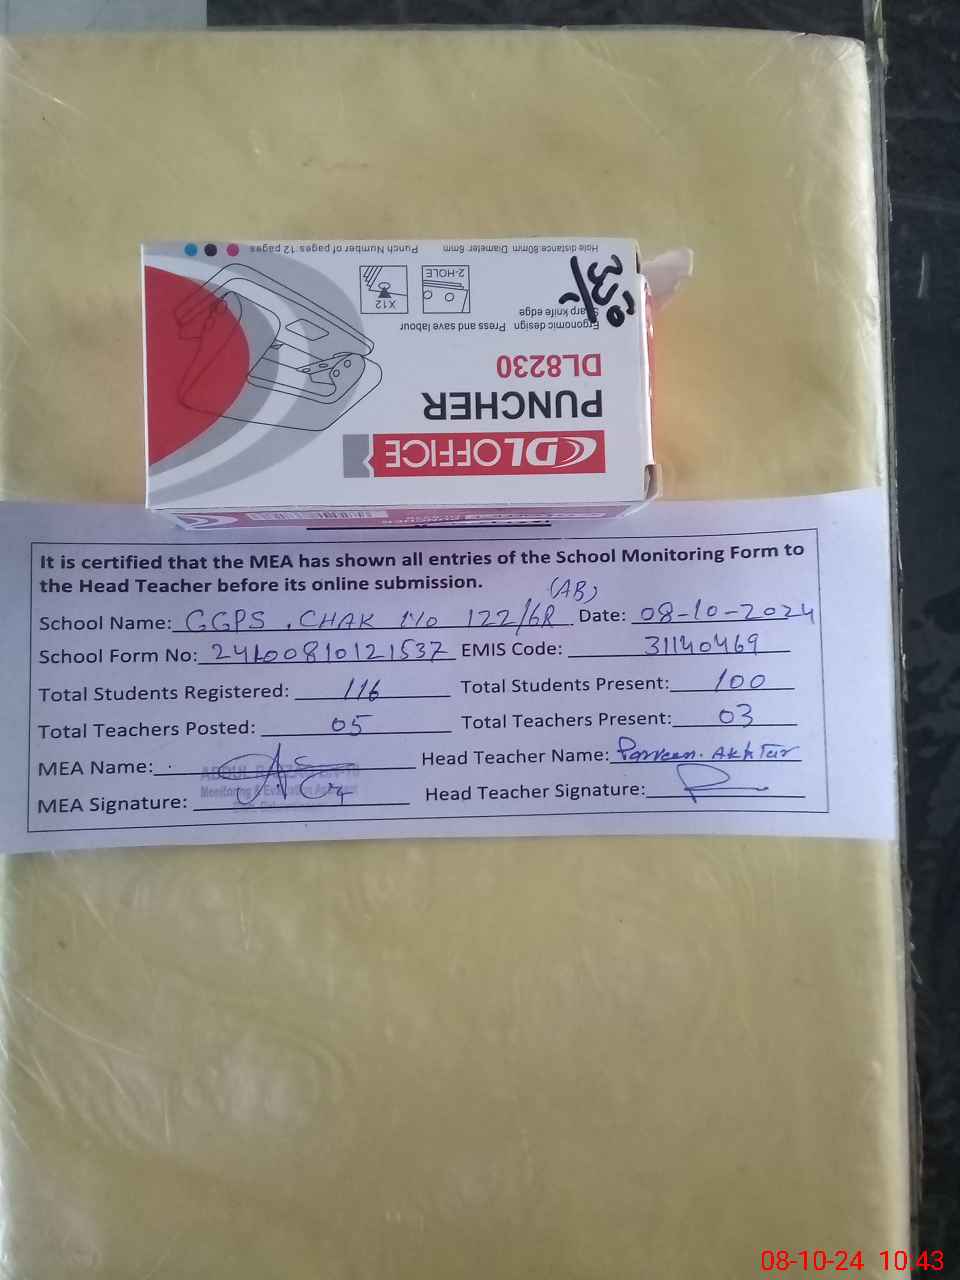 Hole distance:80mm Diameter 6mm Punch Number of pages 12 pages
2-HOLE
X12
Ergonomic design Press and save labour
Sharp knife edge
DL8230
PUNCHER
DL OFFICE
It is certified that the MEA has shown all entries of the School Monitoring Form to
the Head Teacher before its online submission.
(AB)
School Name: GGPS . CHAK NO 122/6R Date: 08-10-2024
School Form No: 24100810121537 EMIS Code: 31140469
Total Students Registered: 116 Total Students Present: 100
Total Teachers Posted: 05 Total Teachers Present: 03
MEA Name: Head Teacher Name: Parveen. Akhtar
Monitoring & Evaluation Assistant
MEA Signature: Head Teacher Signature:
08-10-24 10:43